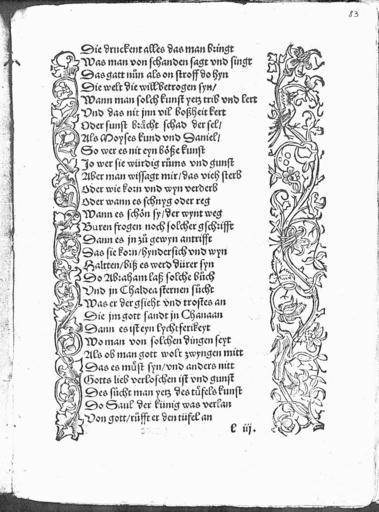 83
Die druckent alles das man bringt
Was man von schanden sagt vnd singt
Das gatt nün als on stroff do hyn
Die welt die will betrogen syn/
Wann man solch kunst yetz trib vnd lert
Vnd das nit jnn vil boßheit kert
Oder sunst brächt schad der sel/
Als Moyses kund vnd Daniel/
So wer es nit eyn bőße kunst
Jo wer sie würdig rüms vnd gunst
Aber man wissagt mir/das vieh sterb
Oder wie korn vnd wyn verderb
Oder wann es schnyg oder reg
Wann es schőn sy/der wynt weg
Buren frogen noch solcher gschrifft
Dann es jn zů gewyn antrifft
Das sie korn/hyndersich vnd wyn
Haltten/biß es werd dürer syn
Do Abraham laß solche bůch
Vnd jn Chaldea sternen sůcht
Was er der gsicht vnd trostes an
Die jm gott sandt jn Chanaan
Dann es ist eyn lychtferikeyt
Wo man von solchen dingen seyt
Als ob man gott wolt zwyngen mitt
Das es můst syn/vnd anders nitt
Gotts lieb verloschen ist vnd gunst
Des sücht man yetz des tüfels kunst
Do Saul der künig was verlan
Von gott/rüfft er den tüfel an
l iii.